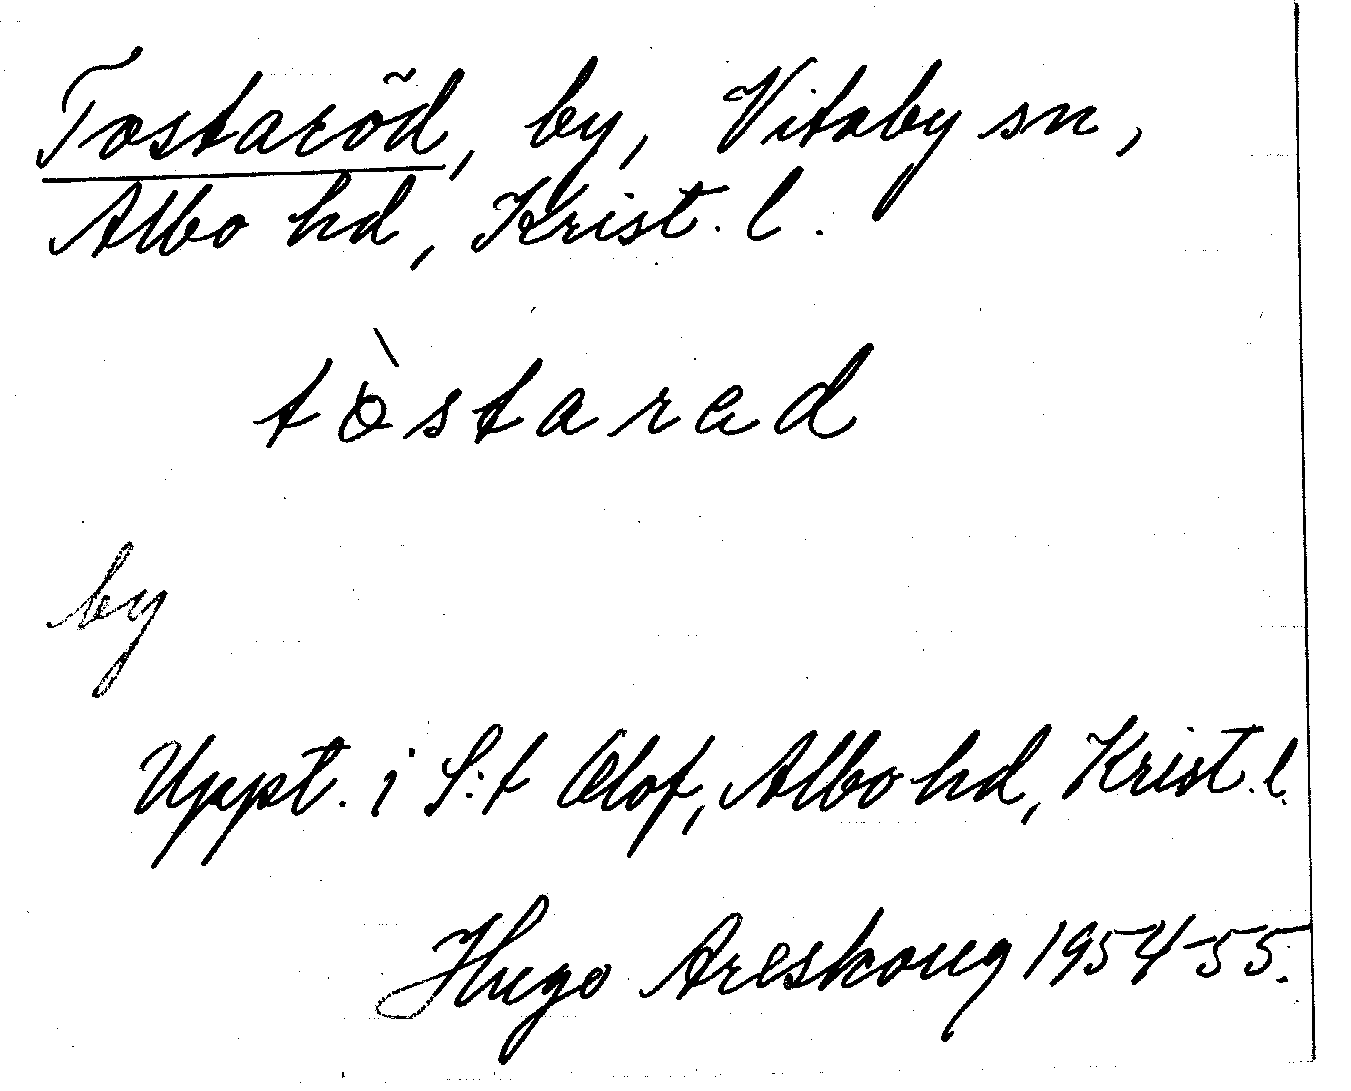 Tostaröd, by, Vitaby sn,
Albo hd, Krist. l.
tòstarad
by
Uppt. i S:t Olof, Albo hd, Krist. l.
Hugo Areskoug 1954-55.